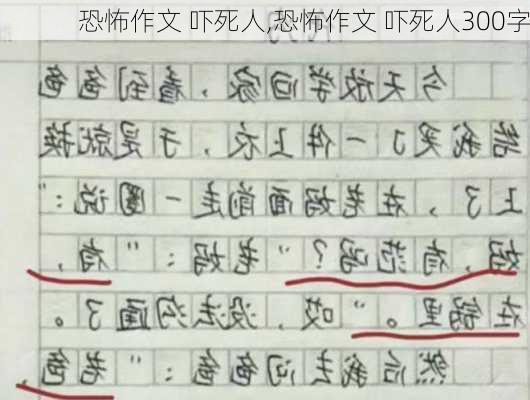 恐怖作文 吓死人,恐怖作文 吓死人300字
今天放学回家，看到爸爸
给我买了一件上衣，于是就换
上了，在老妈面前走一圈说：“
妈，有范吗？”老妈：“有，
在锅里。”哎，没法沟通了。
然后我去问爸爸：“老爸，